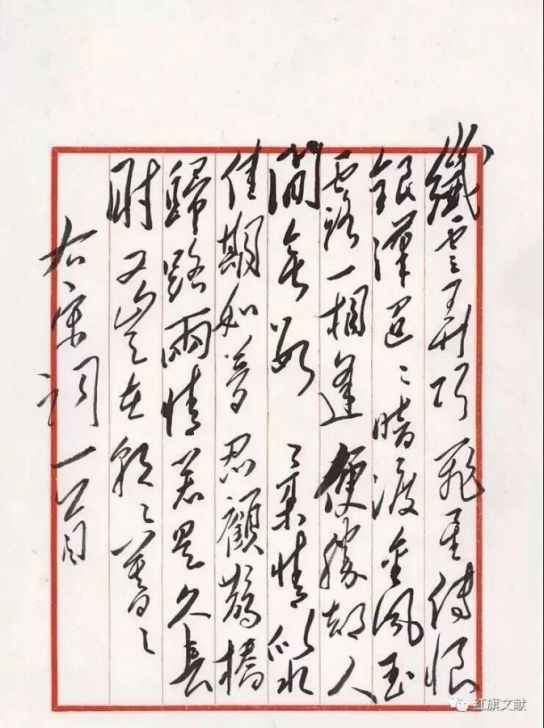 纖雲弄巧飛星傳恨
銀漢迢〻暗渡金風玉
露一相逢便勝却人
間無數 柔情似水
佳期如夢忍顧鵲橋
歸路兩情若是久長
時又豈在朝〻暮〻
右宋詞一首
红旗文献